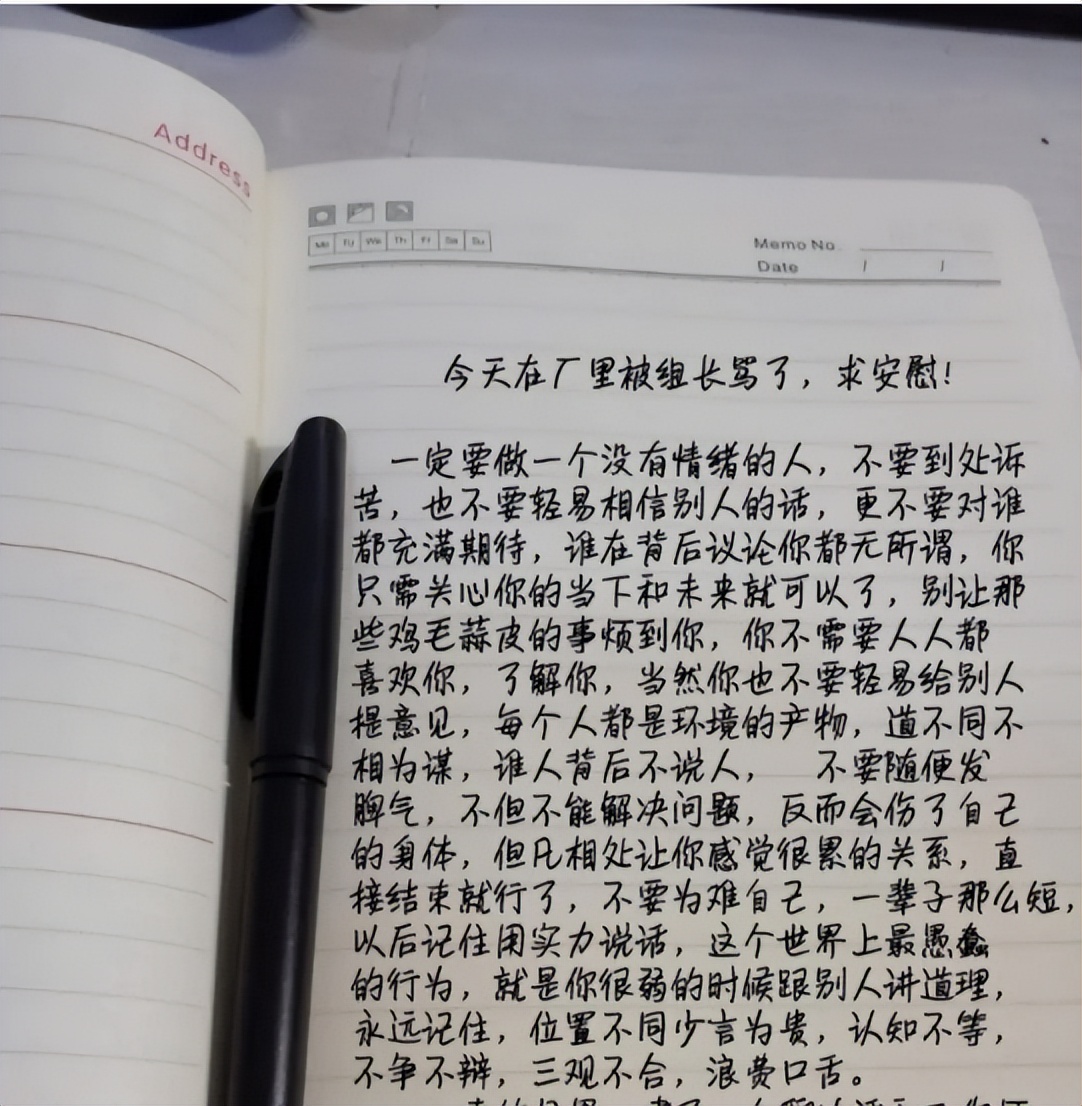 Address
Mo Tu We Th Fr Sa Su
Memo No.
Date / /
今天在厂里被组长骂了，求安慰！
一定要做一个没有情绪的人，不要到处诉
苦，也不要轻易相信别人的话，更不要对谁
都充满期待，谁在背后议论你都无所谓，你
只需关心你的当下和未来就可以了，别让那
些鸡毛蒜皮的事烦到你，你不需要人人都
喜欢你，了解你，当然你也不要轻易给别人
提意见，每个人都是环境的产物，道不同不
相为谋，谁人背后不说人， 不要随便发
脾气，不但不能解决问题，反而会伤了自己
的身体，但凡相处让你感觉很累的关系，直
接结束就行了，不要为难自己，一辈子那么短，
以后记住用实力说话，这个世界上最愚蠢
的行为，就是你很弱的时候跟别人讲道理，
永远记住，位置不同少言为贵，认知不等，
不争不辩，三观不合，浪费口舌。